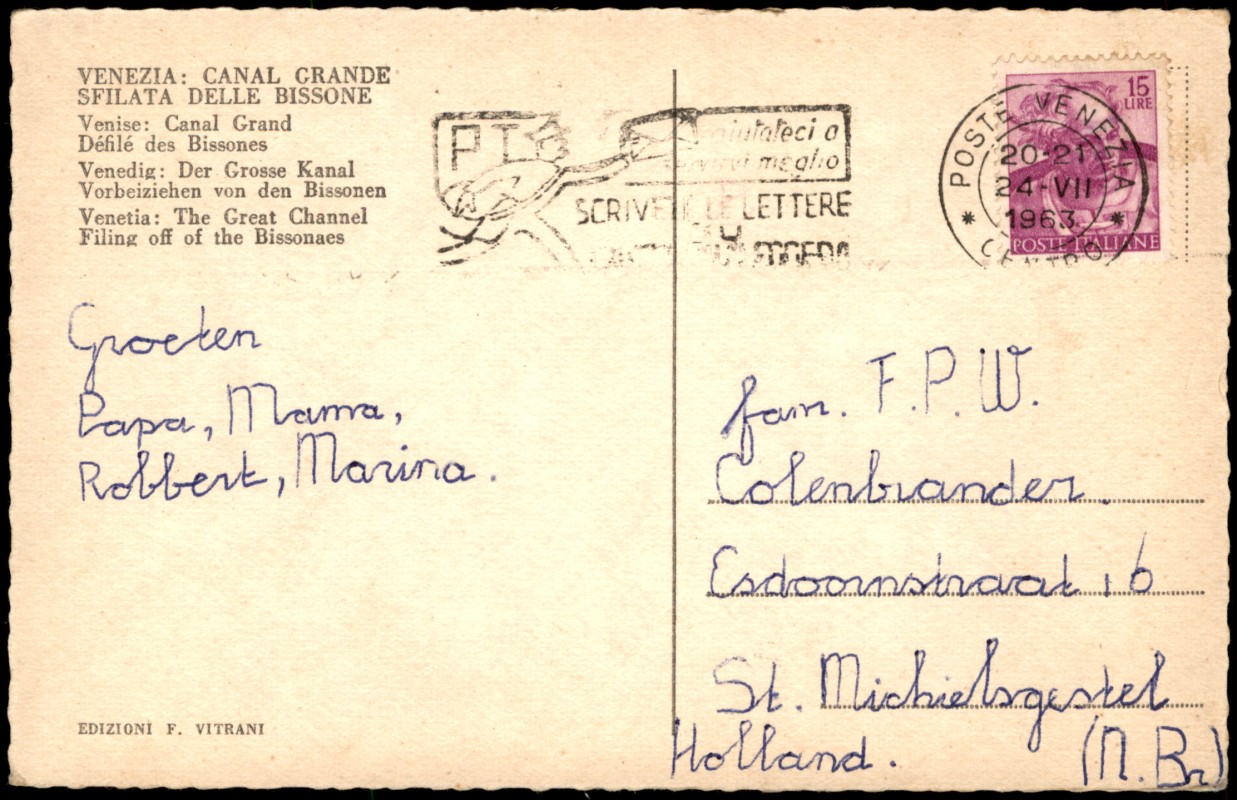 VENEZIA: CANAL GRANDE
SFILATA DELLE BISSONE
Venise: Canal Grand
Défilé des Bissones
Venedig: Der Grosse Kanal
Vorbeiziehen von den Bissonen
Venetia: The Great Channel
Filing off of the Bissonaes
PT
aiutateci a
servirvi meglio
SCRIVETE LE LETTERE
15
LIRE
POSTE VENEZIA
20-21
24-VII
1963
CENTRO
POSTE ITALIANE
Groeten
Papa, Mama,
Robbert, Marina.
fam. F.P.W.
Colenbrander.
Esdoornstraat 16
St. Michielsgestel
Holland. (N.Br)
EDIZIONI F. VITRANI